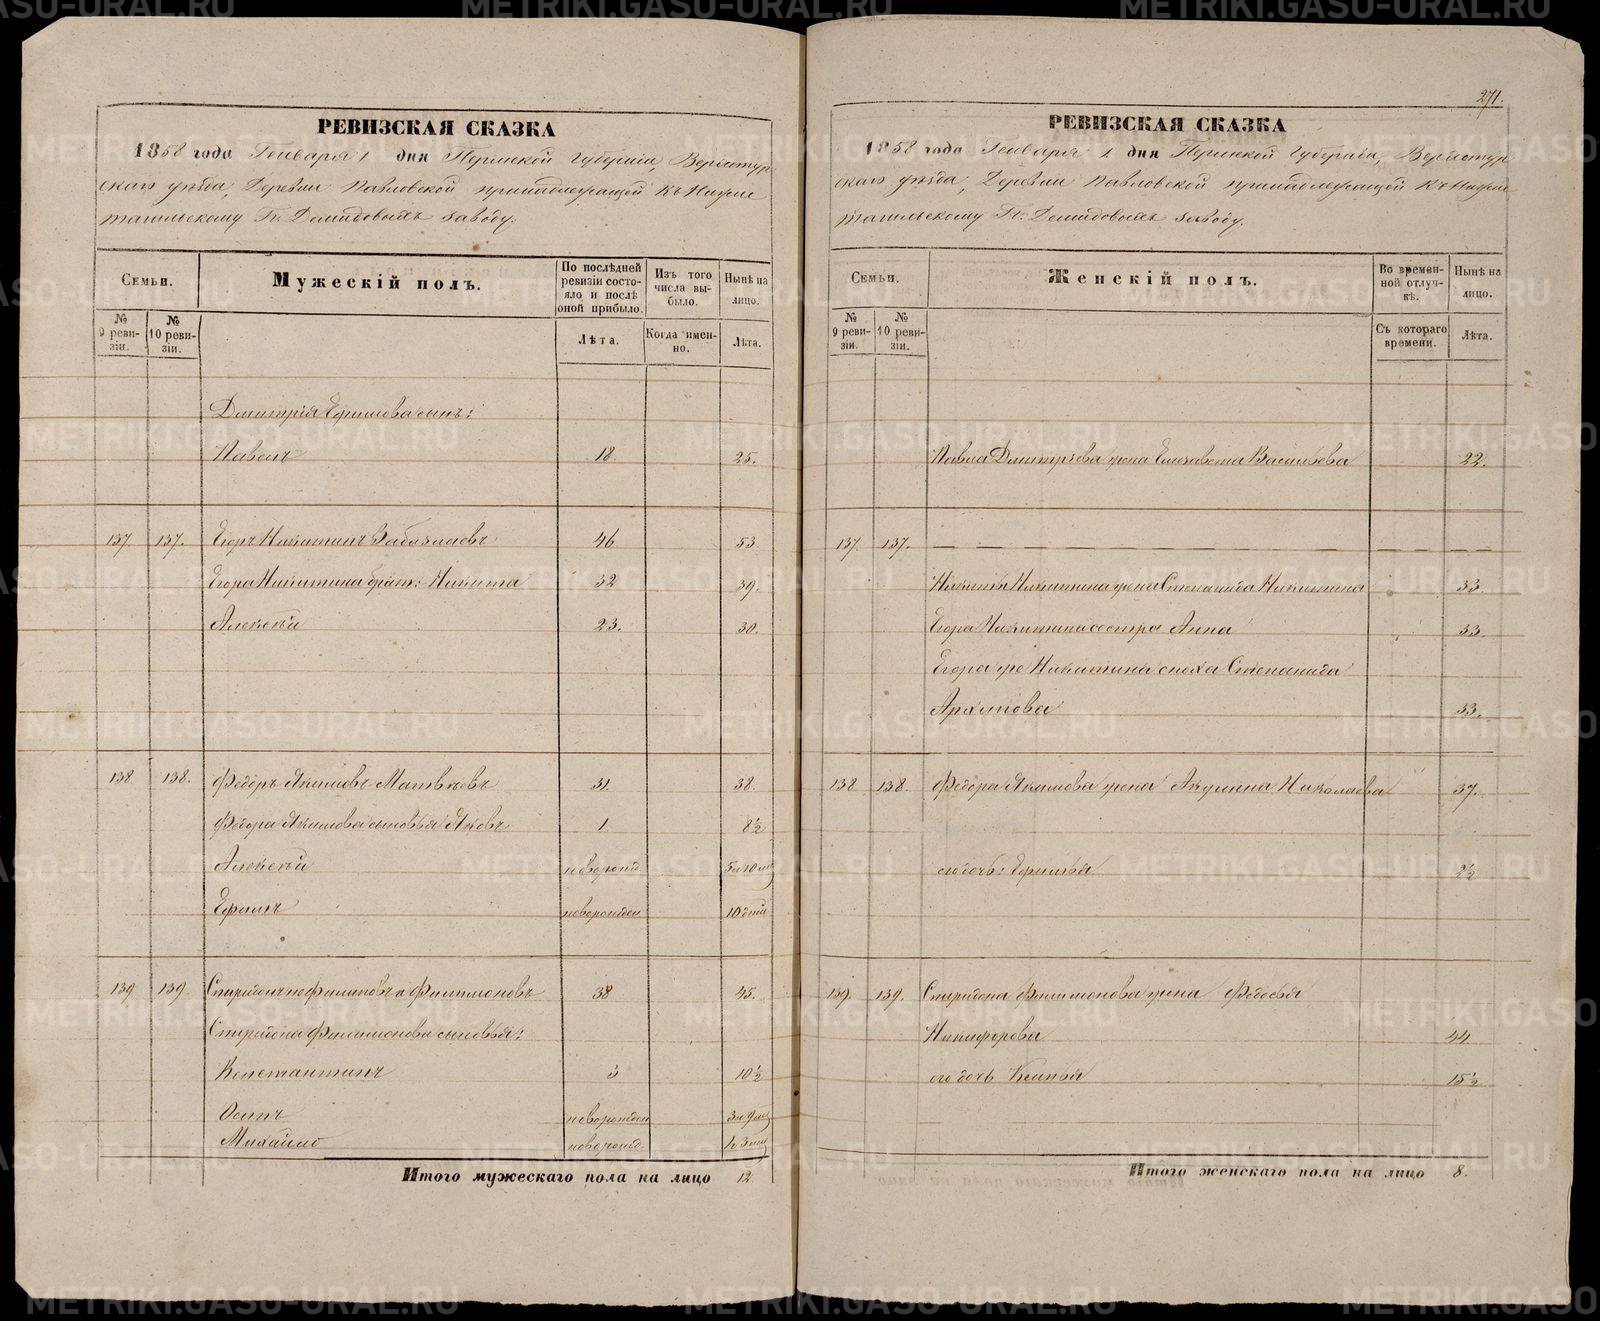 РЕВИЗСКАЯ СКАЗКА
1858 года Генваря 1 дня Пермской Губерніи, Верхотур
скаго уѣзда, Деревни Павловской принадлежащей Къ Нижне
тагильскому Гг: Демидовыхъ заводу.
Семьи.
Мужескій полъ.
По послѣдней ревизіи состояло и послѣ оной прибыло.
Изъ того числа выбыло.
Нынѣ на лицо.
№ 9 ревизіи.
№ 10 ревизіи.
Лѣта.
Когда именно.
Лѣта.
Дмитрія Ефимова сынъ:
Павелъ 18. 25.
137. 137. Егоръ Никитинъ 46 53.
Егора Никитина братъ: Никита 32 39.
Алексѣй 23. 30.
138 138. Федоръ Якимовъ Матвѣевъ 31. 38.
Федора Якимова сыновья Яковъ 1. 8½
Алексѣй новорожд.
Ефимъ новорожден 10 дней
139 139. Спиридонъ Филимоновъ 38 45.
Спиридона Филимонова сыновья:
Константинъ 3 10½
Осипъ новорожден
Михайло новорожд.
Итого мужескаго пола на лицо 12
271.
РЕВИЗСКАЯ СКАЗКА
1858 года Генваря 1 дня Пермской Губерніи, Верхотур
скаго уѣзда, Деревни Павловской принадлежащей Къ Нижне
тагильскому Гг: Демидовыхъ заводу.
Семьи.
Женскій полъ.
Во временной отлучкѣ.
Нынѣ на лицо.
№ 9 ревизіи.
№ 10 ревизіи.
Съ котораго времени.
Лѣта.
Павла Дмитріева жена Елизавета Васильева 22.
137. 137. — — — — — — — — — —
Никиты Никитина жена Степанида Никитина 33.
Егора Никитина сестра Анна 33.
Егора же Никитина сноха Степанида
Архипова 33.
138 138. Федора Якимова жена Акулина Николаева 37.
его дочь: Ефимья 2½
139. 139. Спиридона Филимонова жена Федосья
Никифорова 44
его дочь 15½
Итого женскаго пола на лицо 8.
METRIKI.GASO-URAL.RU